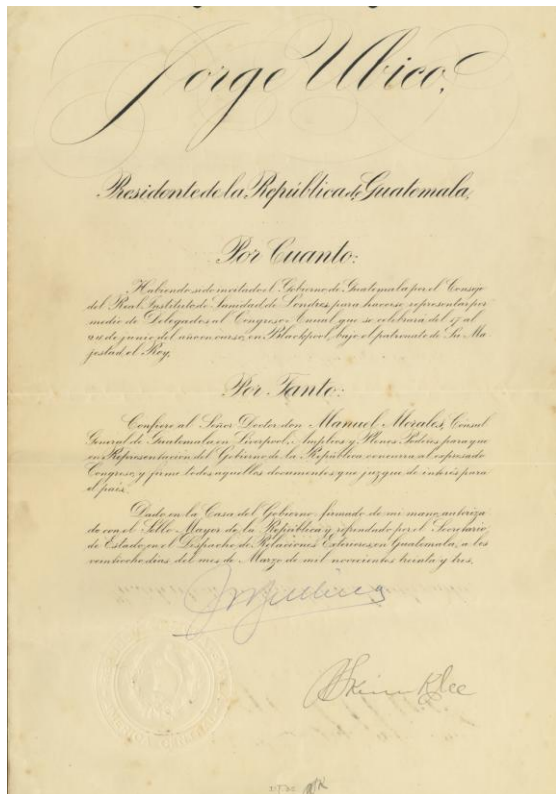 Jorge Ubico,
Presidente de la República de Guatemala,
Por Cuanto:
Habiendo sido invitado el Gobierno de Guatemala por el Consejo
del Real Instituto de Sanidad de Londres, para hacerse representar por
medio de Delegados al Congreso Anual que se celebrará del 17 al
24 de junio del año en curso, en Blackpool, bajo el patronato de Su Ma
jestad el Rey,
Por Tanto:
Confiero al Señor Doctor don Manuel Morales, Cónsul
General de Guatemala en Liverpool, Amplios y Plenos Poderes para que
en Representación del Gobierno de la República concurra al expresado
Congreso, y firme todos aquellos documentos que juzgue de interés para
el país.
Dado en la Casa del Gobierno: firmado de mi mano, autoriza
do con el Sello Mayor de la República y refrendado por el Secretario
de Estado en el Despacho de Relaciones Exteriores, en Guatemala, a los
veintiocho días del mes de Marzo de mil novecientos treinta y tres.
Skinner Klee